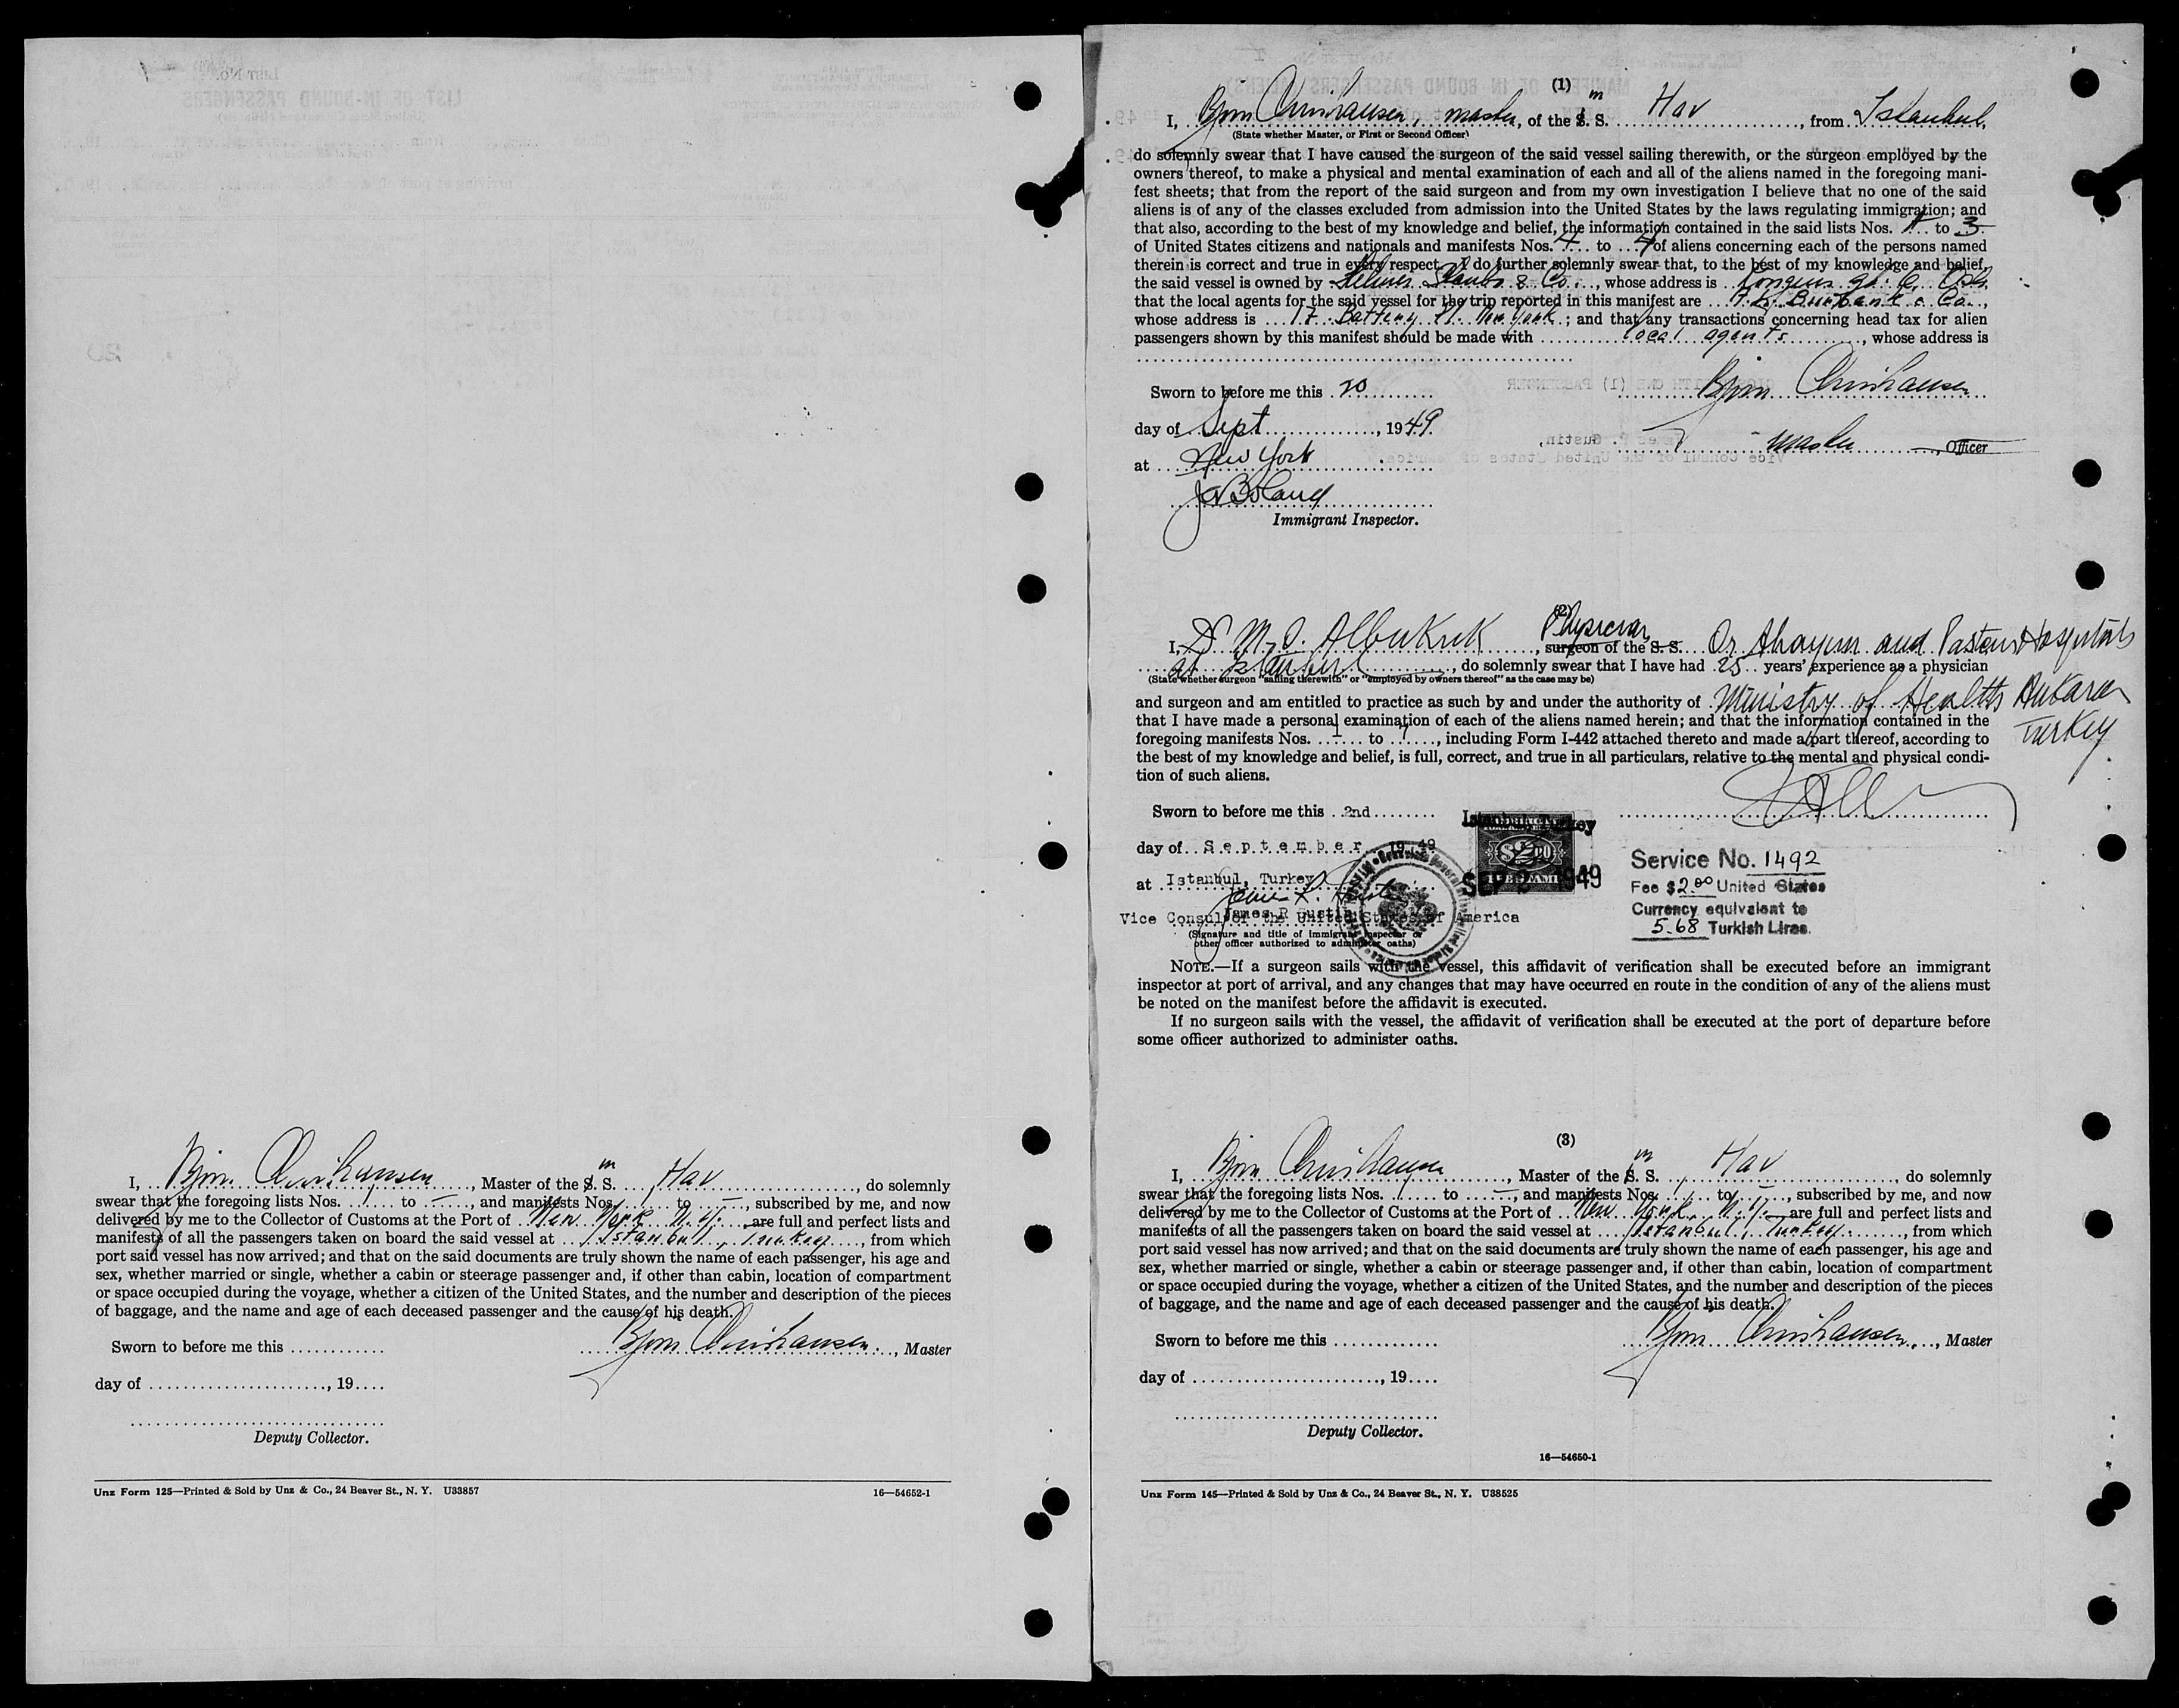 I, Bjorn Christiansen, Master of the S. S. m Hav, do solemnly
swear that the foregoing lists Nos. 1 to —, and manifests Nos. 1 to —, subscribed by me, and now
delivered by me to the Collector of Customs at the Port of New York N.Y. are full and perfect lists and
manifests of all the passengers taken on board the said vessel at Istanbul, Turkey, from which
port said vessel has now arrived; and that on the said documents are truly shown the name of each passenger, his age and
sex, whether married or single, whether a cabin or steerage passenger and, if other than cabin, location of compartment
or space occupied during the voyage, whether a citizen of the United States, and the number and description of the pieces
of baggage, and the name and age of each deceased passenger and the cause of his death.
Sworn to before me this
Bjorn Christiansen, Master
day of , 19
Deputy Collector.
Unz Form 125—Printed & Sold by Unz & Co., 24 Beaver St., N. Y. U33857
16—54652-1
(1)
I, Bjorn Christiansen, master, of the S. S. m Hav, from Istanbul,
(State whether Master, or First or Second Officer)
do solemnly swear that I have caused the surgeon of the said vessel sailing therewith, or the surgeon employed by the
owners thereof, to make a physical and mental examination of each and all of the aliens named in the foregoing mani-
fest sheets; that from the report of the said surgeon and from my own investigation I believe that no one of the said
aliens is of any of the classes excluded from admission into the United States by the laws regulating immigration; and
that also, according to the best of my knowledge and belief, the information contained in the said lists Nos. to 3
of United States citizens and nationals and manifests Nos. 4 to 4 of aliens concerning each of the persons named
therein is correct and true in every respect. I do further solemnly swear that, to the best of my knowledge and belief,
the said vessel is owned by & Co., whose address is
that the local agents for the said vessel for the trip reported in this manifest are Burbank & Co.,
whose address is 17 Battery Pl. New York; and that any transactions concerning head tax for alien
passengers shown by this manifest should be made with local agents, whose address is
Sworn to before me this 20
Bjorn Christiansen
day of Sept, 1949
master, Officer
at New York
Immigrant Inspector.
(2)
I, Dr M. Albukrek, Physician surgeon of the S. S. Or Ahayim and Pasteur Hospitals
at Istanbul, do solemnly swear that I have had 25 years' experience as a physician
(State whether surgeon "sailing therewith" or "employed by owners thereof" as the case may be)
and surgeon and am entitled to practice as such by and under the authority of Ministry of Health Ankara
Turkey
that I have made a personal examination of each of the aliens named herein; and that the information contained in the
foregoing manifests Nos. 1 to , including Form I-442 attached thereto and made a part thereof, according to
the best of my knowledge and belief, is full, correct, and true in all particulars, relative to the mental and physical condi-
tion of such aliens.
Sworn to before me this 2nd
day of September 1949
at Istanbul, Turkey
James R Gustin
Vice Consul of the United States of America
(Signature and title of immigrant inspector or
other officer authorized to administer oaths)
Istanbul, Turkey
SEP 2 1949
Service No. 1492
Fee $2.00 United States
Currency equivalent to
5.68 Turkish Liras.
NOTE.—If a surgeon sails with the vessel, this affidavit of verification shall be executed before an immigrant
inspector at port of arrival, and any changes that may have occurred en route in the condition of any of the aliens must
be noted on the manifest before the affidavit is executed.
If no surgeon sails with the vessel, the affidavit of verification shall be executed at the port of departure before
some officer authorized to administer oaths.
(3)
I, Bjorn Christiansen, Master of the S. S. m Hav, do solemnly
swear that the foregoing lists Nos. 1 to —, and manifests Nos. 1 to —, subscribed by me, and now
delivered by me to the Collector of Customs at the Port of New York, N.Y. are full and perfect lists and
manifests of all the passengers taken on board the said vessel at Istanbul, Turkey, from which
port said vessel has now arrived; and that on the said documents are truly shown the name of each passenger, his age and
sex, whether married or single, whether a cabin or steerage passenger and, if other than cabin, location of compartment
or space occupied during the voyage, whether a citizen of the United States, and the number and description of the pieces
of baggage, and the name and age of each deceased passenger and the cause of his death.
Sworn to before me this
Bjorn Christiansen, Master
day of , 19
Deputy Collector.
16—54650-1
Unz Form 145—Printed & Sold by Unz & Co., 24 Beaver St., N. Y. U38525